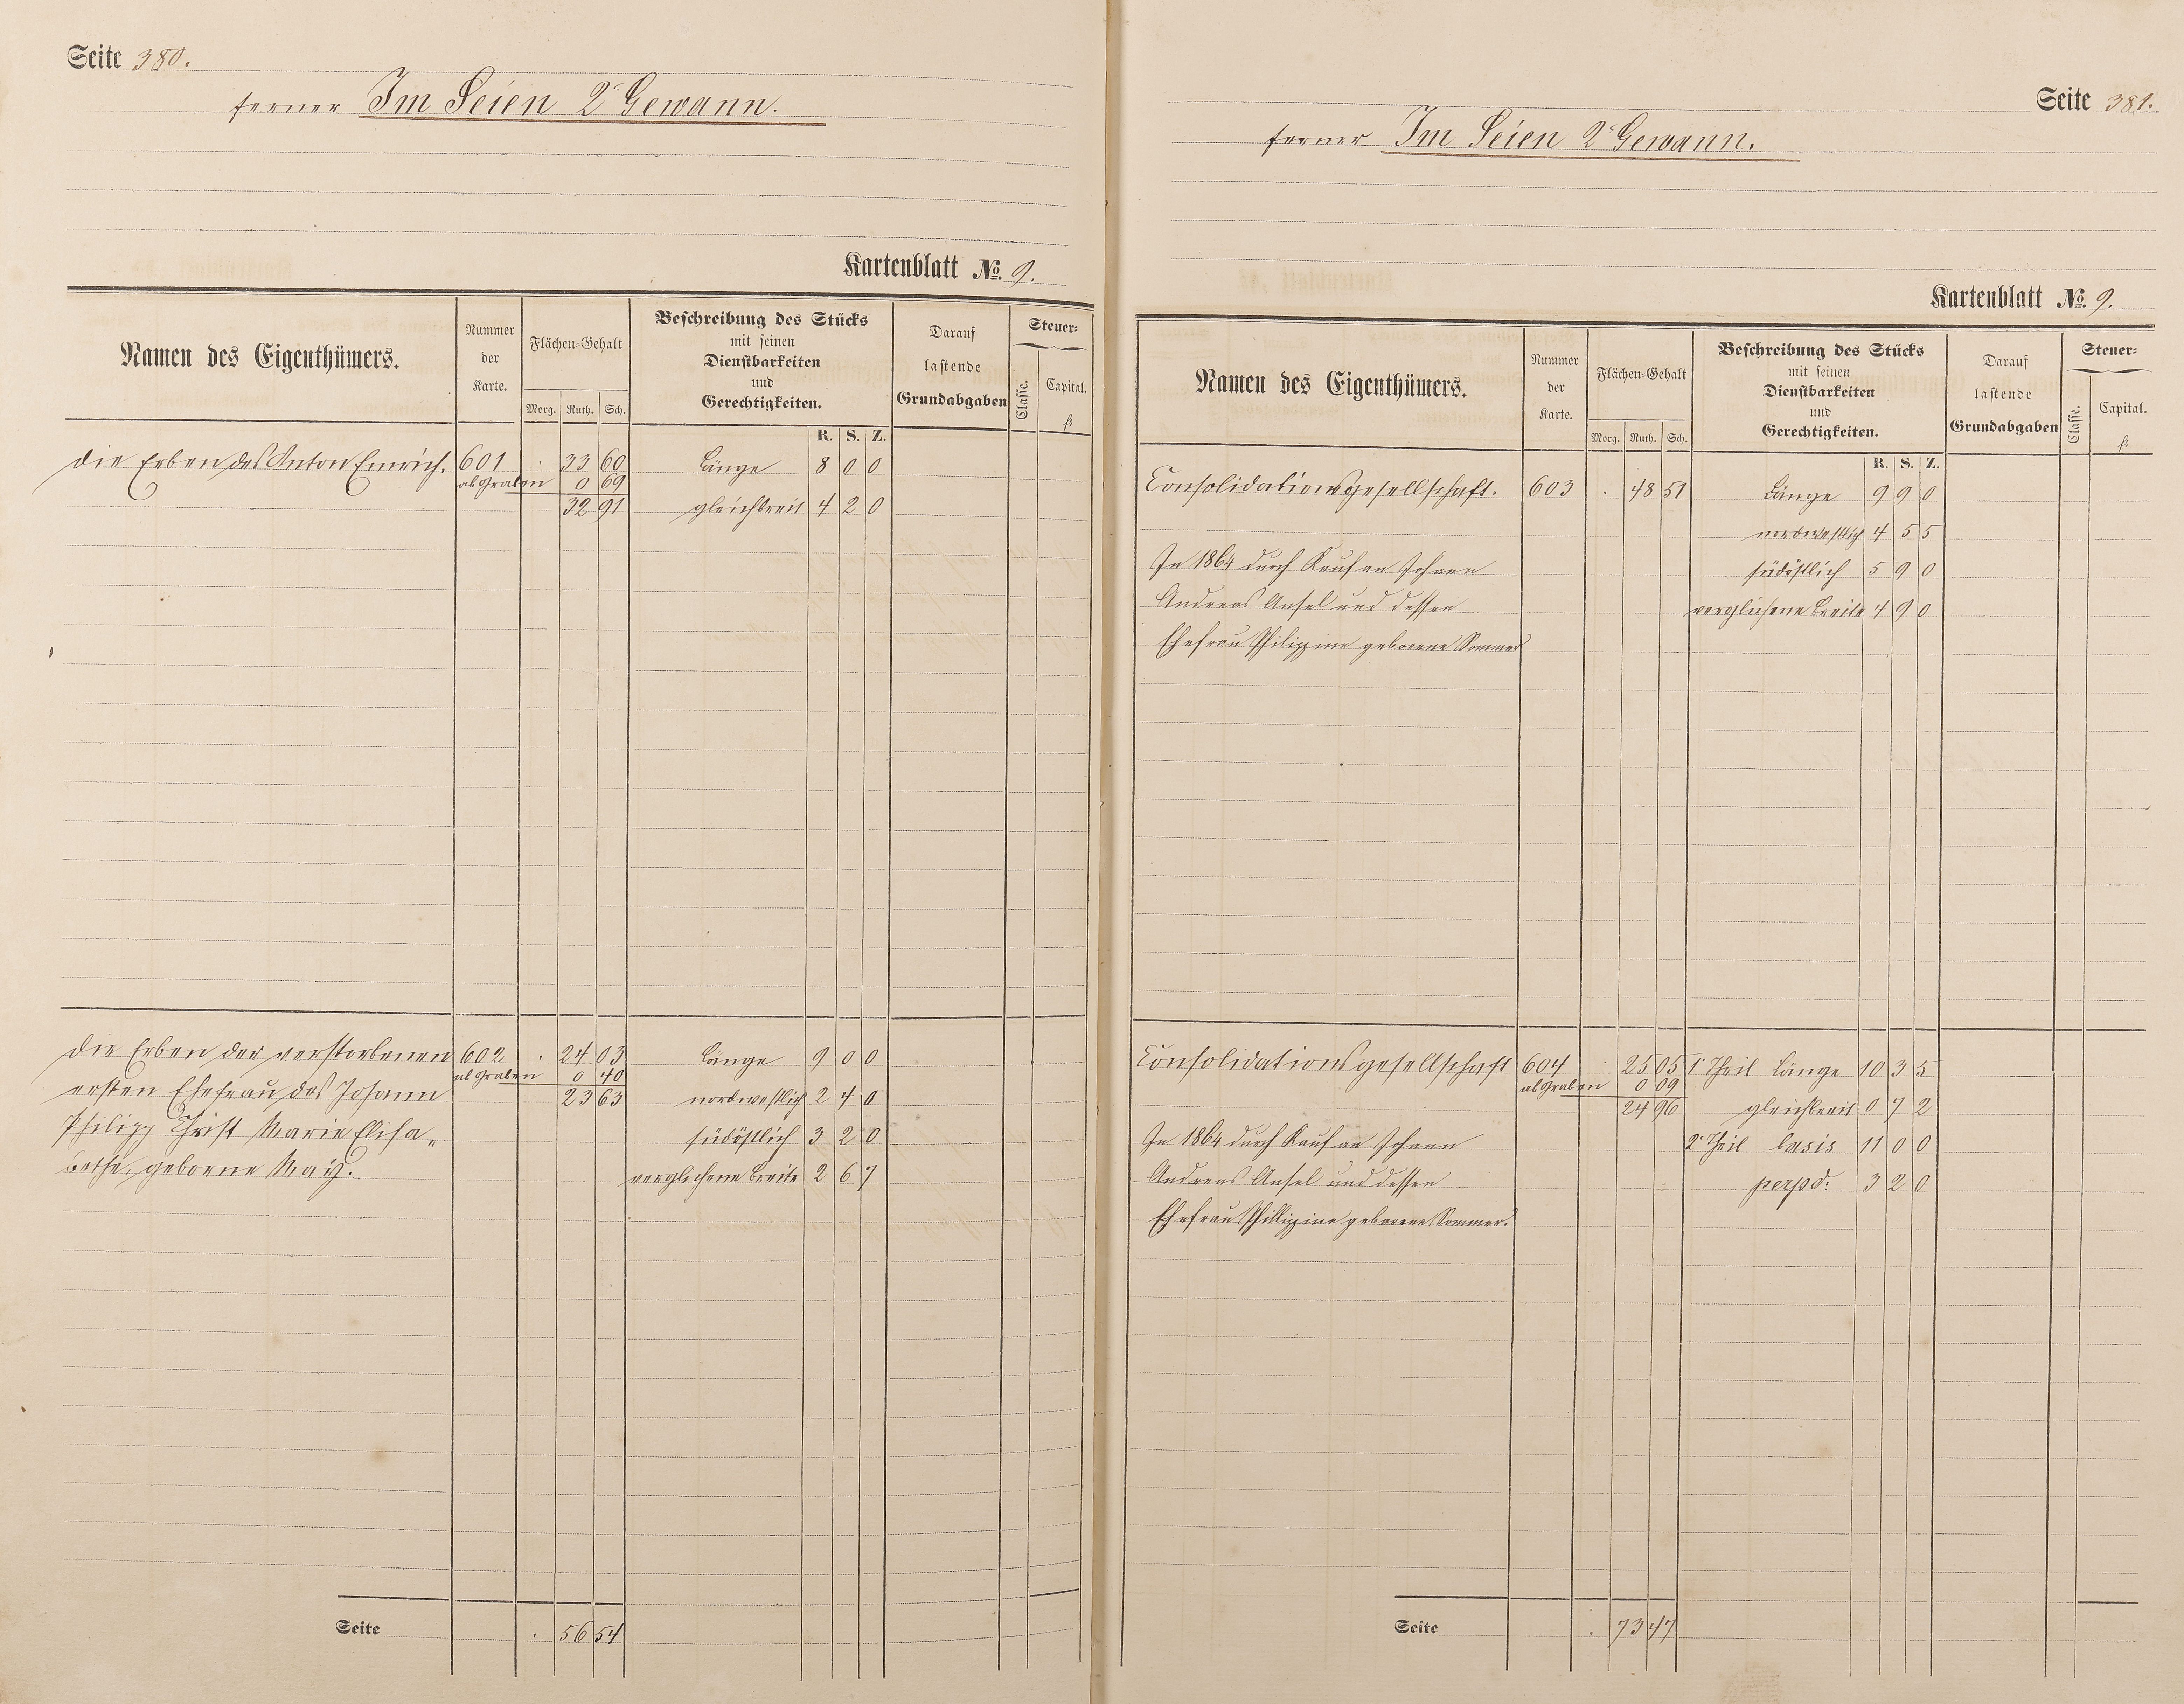 Seite 380.
ferner Im Seien 2r Gewann.
Kartenblatt No. 9.
Namen des Eigenthümers.
Nummer der Karte.
Flächen-Gehalt
Morg. Ruth. Sch.
Beschreibung des Stücks
mit seinen
Dienstbarkeiten
und
Gerechtigkeiten.
Darauf
lastende
Grundabgaben
Steuer-
Classe.
Capital.
fl
R. S. Z.
die Erben des Anton Emrich. 601 . 33 60 Länge 8 0 0
ab Graben 0 69
32 91 gleichbreit 4 2 0
die Erben der verstorbenen 602 . 24 03 Länge 9 0 0
ab Graben 0 40
ersten Ehefrau des Johann 23 63 nordwestlich 2 4 0
Philipp Christ Marie Elisa- südöstlich 3 2 0
bethe, geborne May. verglichene Breite 2 6 7
Seite . 56 54
Seite 381.
ferner Im Seien 2r Gewann.
Kartenblatt No. 9.
Namen des Eigenthümers.
Nummer der Karte.
Flächen-Gehalt
Morg. Ruth. Sch.
Beschreibung des Stücks
mit seinen
Dienstbarkeiten
und
Gerechtigkeiten.
Darauf
lastende
Grundabgaben
Steuer-
Classe.
Capital.
fl
R. S. Z.
Consolidationsgesellschaft. 603 . 48 51 Länge 9 9 0
nordwestlich 4 5 5
In 1864 durch Kauf an Johann südöstlich 5 9 0
Andreas Ansel und dessen verglichene Breite 4 9 0
Ehefrau Philippine geborene Sommer
Consolidationsgesellschaft 604 . 25 05 1r Theil Länge 10 3 5
ab Graben 0 09
24 96 gleichbreit 0 7 2
In 1864 durch Kauf an Johann 2r Theil basis 11 0 0
Andreas Ansel und dessen perpd: 3 2 0
Ehefrau Phillippine geborene Sommer.
Seite . 73 47